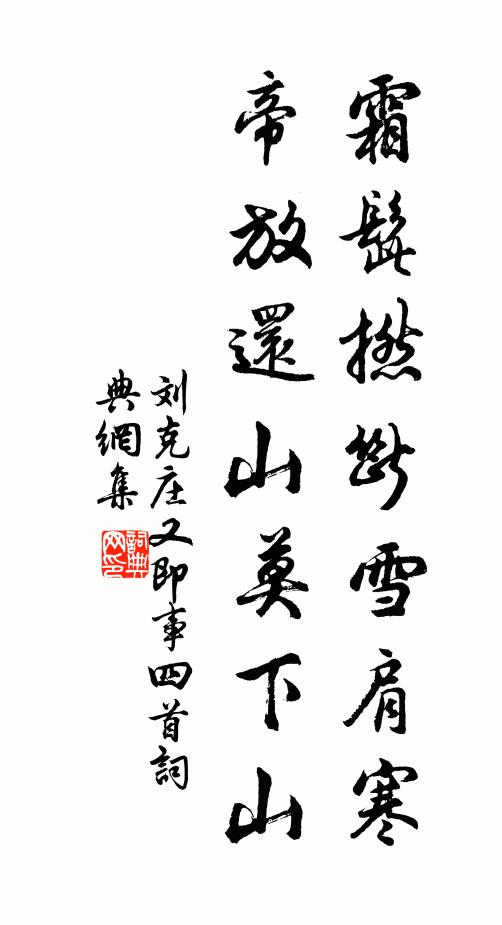 霜髭撚斷雪肩寒
帝放還山莫下山
刘克庄又即事四首詞
典網集
詞典网印